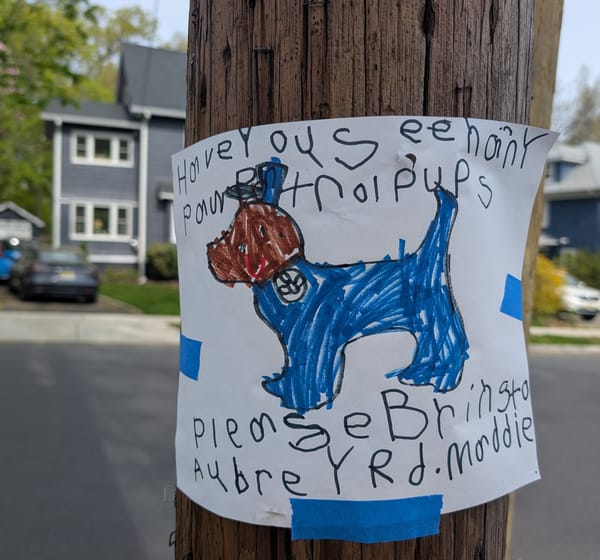 Have You seen any
paw Patrol Pups
please Bring to
Aubrey Rd. Maddie